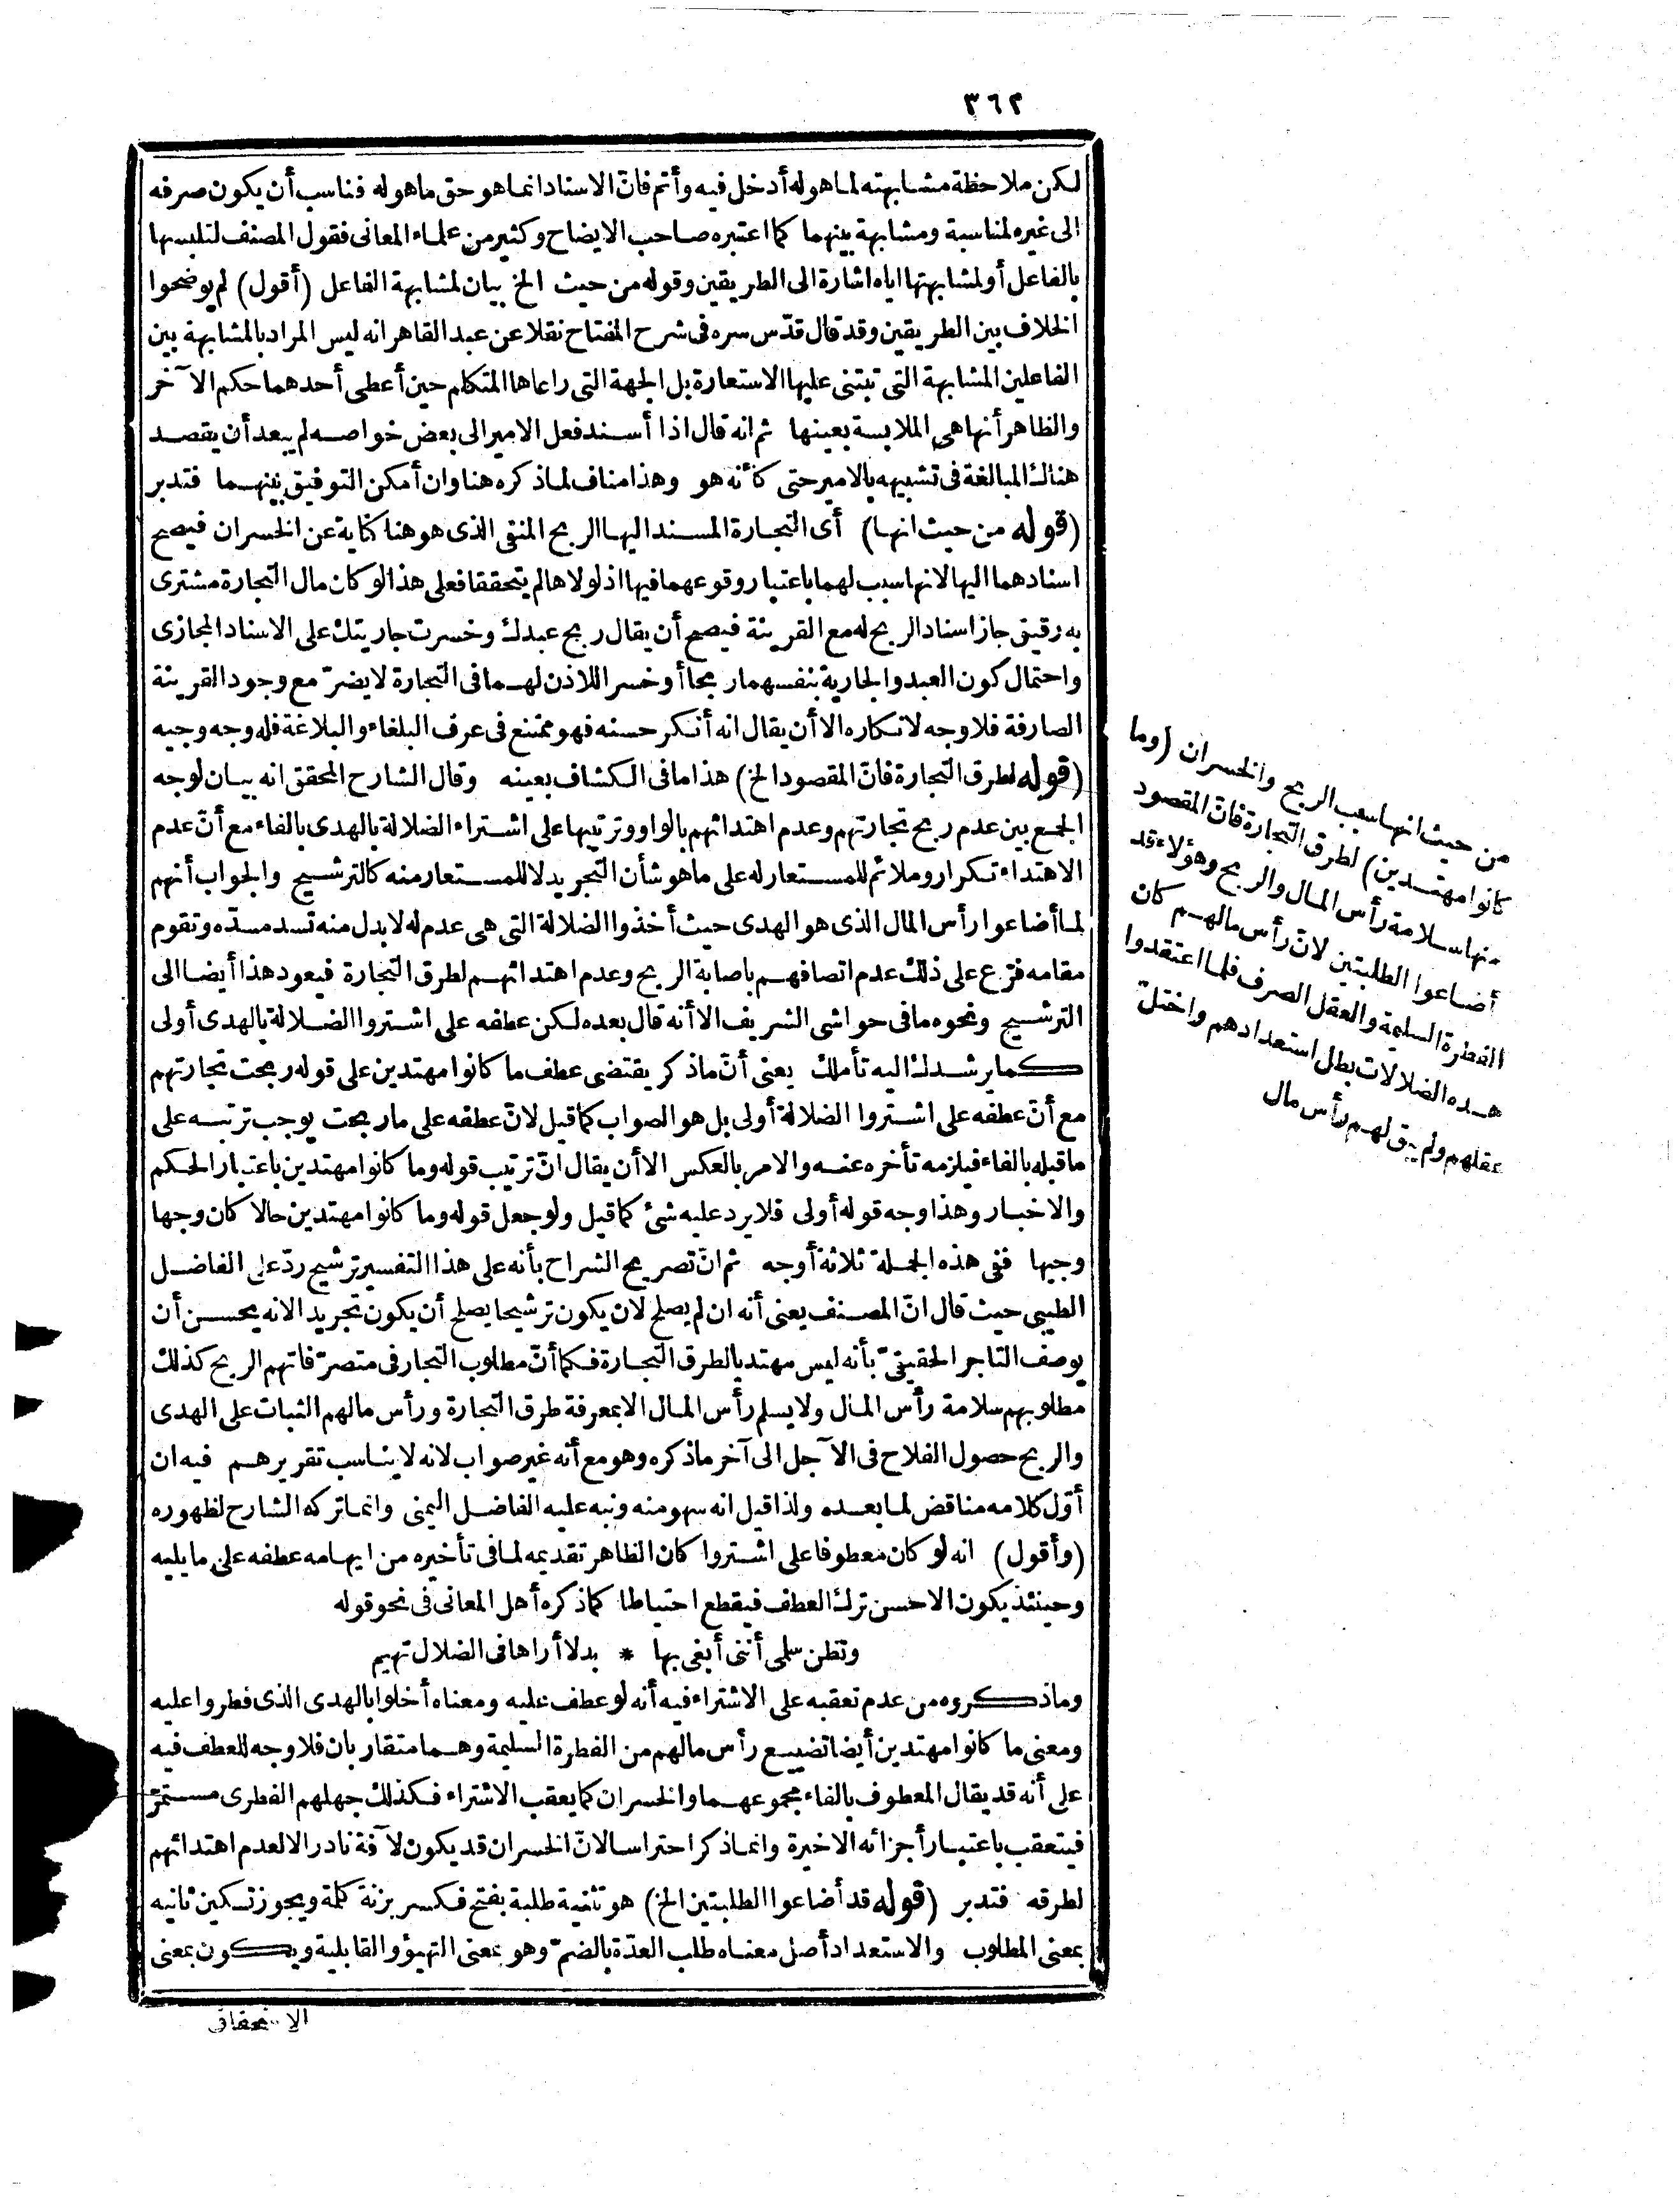 ٣٦٢
لكن ملاحظة مشابهته لما هوله أدخل فيه وأتم فانّ الاسناد انما هو حق ما هو له فناسب أن يكون صرفه
الى غيره لمناسبة ومشابهة بينهما كما اعتبره صاحب الايضاح وكثير من علماء المعانى فقول المصنف لتلبسها
بالفاعل أو لمشابهتها اياه اشارة الى الطريقين وقوله من حيث الخ بيان لمشابهة الفاعل (أقول) لم يوضحوا
الخلاف بين الطريقين وقد قال قدّس سره فى شرح المفتاح نقلا عن عبد القاهر انه ليس المراد بالمشابهة بين
الفاعلين المشابهة التى تبتنى عليها الاستعارة بل الجهة التى راعاها المتكلم حين أعطى أحدهما حكم الآخر
والظاهر أنها هى الملابسة بعينها ثم انه قال اذا أسند فعل الامير الى بعض خواصه لم يبعد أن يقصد
هناك المبالغة فى تشبيهه بالامير حتى كأنه هو وهذا مناف لما ذكره هنا وان أمكن التوفيق بينهما فتدبر
(قوله من حيث انها) أى التجارة المسند اليها الربح المنفى الذى هو هنا كناية عن الخسران فيصح
اسنادهما اليها لانها سبب لهما باعتبار وقوعهما فيها اذ لولاها لم يتحققا فعلى هذا لو كان مال التجارة مشترى
به رقيق جاز اسناد الربح له مع القرينة فيصح أن يقال ربح عبدك وخسرت جاريتك على الاسناد المجازى
واحتمال كون العبد والجارية بنفسهما ربحا أو خسرا للاذن لهما فى التجارة لا يضرّ مع وجود القرينة
الصارفة فلا وجه لانكاره الا أن يقال انه أنكر حسنه فهو ممتنع فى عرف البلغاء والبلاغة فله وجه وجيه
(قوله لطرق التجارة فانّ المقصود الخ) هذا ما فى الكشاف بعينه وقال الشارح المحقق انه بيان لوجه
الجمع بين عدم ربح تجارتهم وعدم اهتدائهم بالواو وترتيبها على اشتراء الضلالة بالهدى بالفاء مع أنّ عدم
الاهتداء تكرار وملائم للمستعار له على ما هو شأن التجريد لا للمستعار منه كالترشيح والجواب أنهم
لما أضاعوا رأس المال الذى هو الهدى حيث أخذوا الضلالة التى هى عدم له لا بدل منه تسد مسدّه وتقوم
مقامه فرّع على ذلك عدم اتصافهم باصابة الربح وعدم اهتدائهم لطرق التجارة فيعود هذا أيضا الى
الترشيح ونحوه ما فى حواشى الشريف الا أنه قال بعده لكن عطفه على اشتروا الضلالة بالهدى أولى
كما يرشدك اليه تأملك يعنى أنّ ما ذكر يقتضى عطف ما كانوا مهتدين على قوله ربحت تجارتهم
مع أنّ عطفه على اشتروا الضلالة أولى بل هو الصواب كما قيل لانّ عطفه على ما ربحت يوجب ترتبه على
ما قبله بالفاء فيلزمه تأخره عنه والامر بالعكس الا أن يقال انّ ترتيب قوله وما كانوا مهتدين باعتبار الحكم
والاخبار وهذا وجه قوله أولى فلا يرد عليه شئ كما قيل ولو جعل قوله وما كانوا مهتدين حالا كان وجها
وجيها ففى هذه الجملة ثلاثة أوجه ثم انّ تصريح الشراح بأنه على هذا التفسير ترشيح ردّ على الفاضل
الطيبى حيث قال انّ المصنف يعنى أنه ان لم يصلح لان يكون ترشيحا يصلح أن يكون تجريدا لانه يحسن أن
يوصف التاجر الحقيقىّ بأنه ليس مهتديا لطرق التجارة فكما أنّ مطلوب التجار فى متصرّفاتهم الربح كذلك
مطلوبهم سلامة رأس المال ولا يسلم رأس المال الا بمعرفة طرق التجارة ورأس مالهم الثبات على الهدى
والربح حصول الفلاح فى الآجل الى آخر ما ذكره وهو مع أنه غير صواب لانه لا يناسب تقريرهم فيه ان
أوّل كلامه مناقض لما بعده ولذا قيل انه سهو منه ونبه عليه الفاضل اليمنى وانما تركه الشارح لظهوره
(وأقول) انه لو كان معطوفا على اشتروا كان الظاهر تقديمه لما فى تأخيره من ايهامه عطفه على ما يليه
وحينئذ يكون الاحسن ترك العطف فيقطع احتياطا كما ذكره أهل المعانى فى نحو قوله
وتظن سلمى أننى أبغى بها * بدلا أراها فى الضلال تهيم
وما ذكروه من عدم تعقبه على الاشتراء فيه أنه لو عطف عليه ومعناه أخلوا بالهدى الذى فطروا عليه
ومعنى ما كانوا مهتدين أيضا تضييع رأس مالهم من الفطرة السليمة وهما متقاربان فلا وجه للعطف فيه
على أنه قد يقال المعطوف بالفاء مجموعهما والخسران كما يعقب الاشتراء فكذلك جهلهم الفطرى مستمرّ
فيتعقب باعتبار أجزائه الاخيرة وانما ذكر احتراسا لانّ الخسران قد يكون لآفة نادرا لا لعدم اهتدائهم
لطرقه فتدبر (قوله قد أضاعوا الطلبتين الخ) هو تثنية طلبة بفتح فكسر بزنة كلمة ويجوز تسكين ثانيه
بمعنى المطلوب والاستعداد أصل معناه طلب العدّة بالضمّ وهو بمعنى التهيؤ والقابلية ويكون بمعنى
الاستحقاق
من حيث انها سبب الربح والخسران (وما
كانوا مهتدين) لطرق التجارة فانّ المقصود
منها سلامة رأس المال والربح وهؤلاء قد
أضاعوا الطلبتين لانّ رأس مالهم كان
الفطرة السليمة والعقل الصرف فلما اعتقدوا
هذه الضلالات بطل استعدادهم واختلّ
عقلهم ولم يبق لهم رأس مال